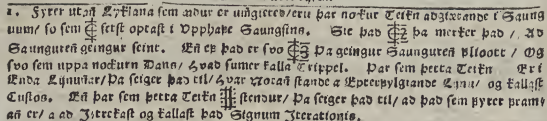 1. Fyrer utan Lyklana sem adur er umgieted/eru þar nokur Teikn adgiætande i Saung
uum/ so sem ₵ setst optast i Vpphafe Saungsins. Sie þad ₵ þa merker þad /. Ad
Saunguren geingur seint. En ef þad er svo ₵2 Þa geingur Saunguren flioott / Og
svo sem uppa nockurn Dans/ Hvad sumer kalla Trippel. Þar sem þetta Teikn Er i
Enda Lijnunar/ Þa seiger þad til/ hvar Notan stande a Epterfylgiande Lynu/ og kallast
Custos. En þar sem þetta Teikn :||: stendur/ Þa seiger þad til/ ad þad sem fyrer fram
an er/ a ad Jtrekast og kallast þad Signum Jterationis.